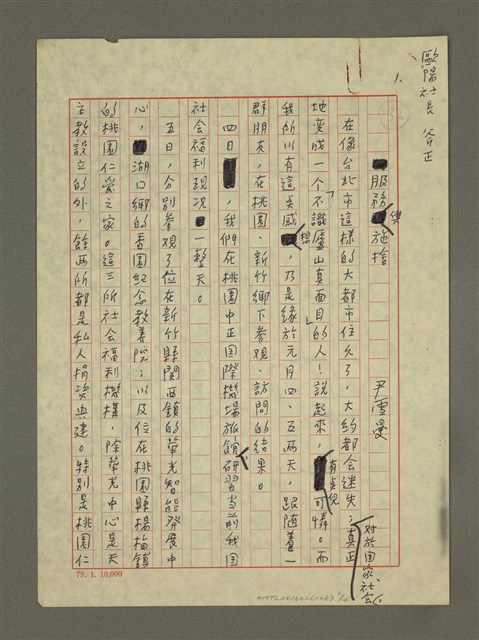 歐陽社長 斧正
1.
服務與施捨
尹雪曼
在像台北市這樣的大都市住久了，大約都会迷失；真正
对於国家、社会，
地変成一个「不識廬山真面目」的人！說起來，有点兒可憐。而
我所以有這点感想，乃是緣於元月四、五兩天，跟隨着一
群朋友，在桃園、新竹鄉下参观、訪問的结果。
四日，我們在桃園中正国際機場旅館研習当前我国
社会福利現况一整天。
五日，分別参观了位在新竹縣関西鎮的華光智能發展中
心，湖口鄉的香園紀念教養院；以及位在桃園縣楊梅鎮
的桃園仁愛之家。這三所社会福利機構，除華光中心是天
主教設立的外，餘兩所都是私人捐资興建。特別是桃園仁
79. 1. 10,000